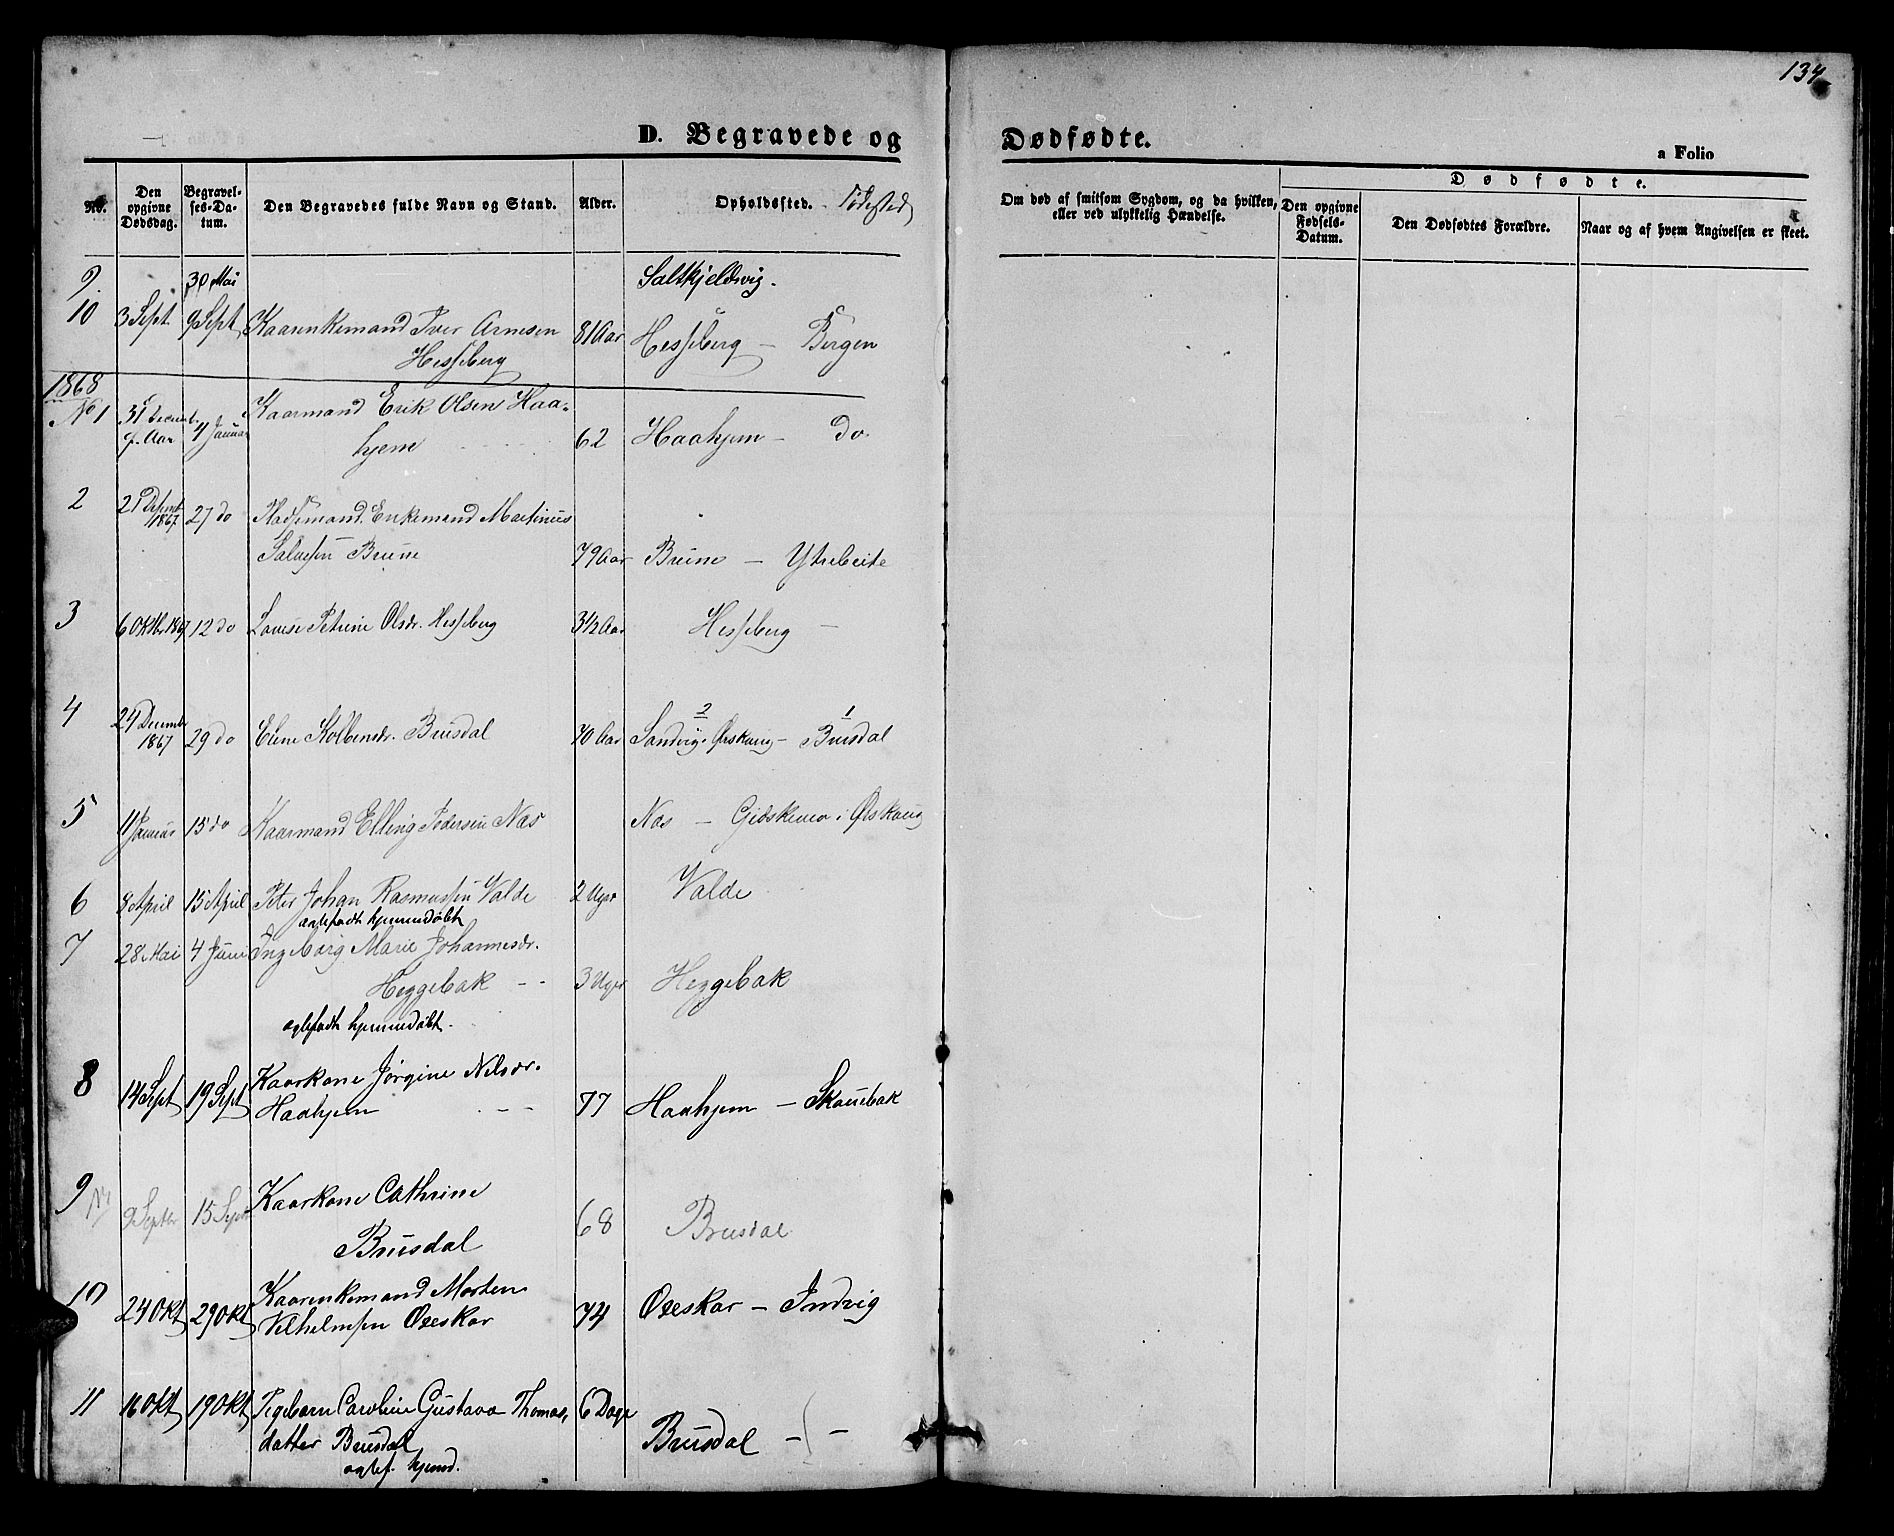 134
D. Begravede og Dødfødte.
a Folio
No.
Den opgivne Dødsdag.
Begravelses-Datum.
Den Begravedes fulde Navn og Stand.
Alder.
Opholdssted. Fødested
Om død af smitsom Sygdom, og da hvilken, eller ved ulykkelig Hændelse.
Dødfødte.
Den opgivne Fødsels-Datum.
Den Dødfødtes Forældre.
Naar og af hvem Angivelsen er skeet.
9. 30 Mai Saltkjeldsvig.
10 3 Sept 9 Sept Kaarenkemand Iver Arnesen 81 Aar Hessberg — Bergen
Hessberg
1868
No 1 31 Decemb. f. Aar 4 Januar Kaarmand Erik Olsen Haa-
hjem 62 Haahjem — Do.
2 21 1867 27 do Enkemand Martinus
Salvesen Brune 79 Aar Brune — Ytrebeite
3 6 Oktbr 1867 12 do Lovise Petrine Olsdr. Hessberg 3½ Aar Hessberg —
4 29 Decembr 1867 29 do Elene Kolbensdr. Brusdal 70 Aar Sandvig i Ørskoug — Brusdal
2 1
5 11 Januar 15 do Kaarmand Elling Pedersen Næs Næs — i Ørskoug
6 8 April 15 April Peter Johan Rasmussen Valde 2 Uger Valde
ægtefødt hjemmedøbt
7 28 Mai 4 Juni Ingeborg Marie Johannesdr.
Heggebak - - 3 Uger Heggebak
ægtefødt hjemmedøbt.
8 14 Sept 19 Sept Kaarkone Jørgine Nilsdr.
Haahjem - - 77 Haahjem — Skouebak
9 9 Septbr 15 Sept Kaarkone Cathrine
Brusdal 68 Brusdal
10 24 Okt 29 Okt Kaarenkemand Morten
Vilhelmsen Øreskar 74 Øreskar — Indvig
11 16 Okt 19 Okt Pigebarn Caroline Gustava Thomas-
datter Brusdal 6 Dage Brusdal — —
ægtef. hjemd.